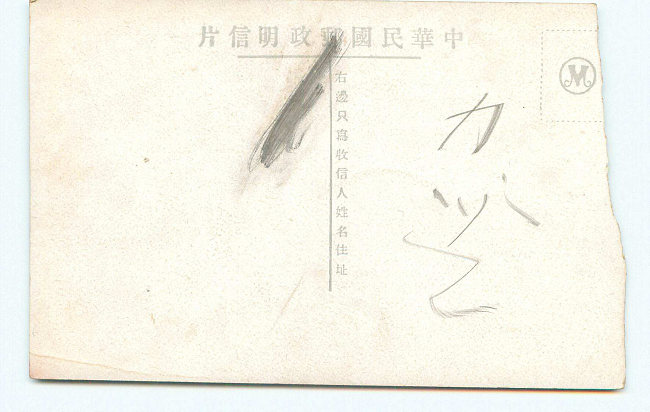 中華民國郵政明信片
M
右邊只寫收信人姓名住址